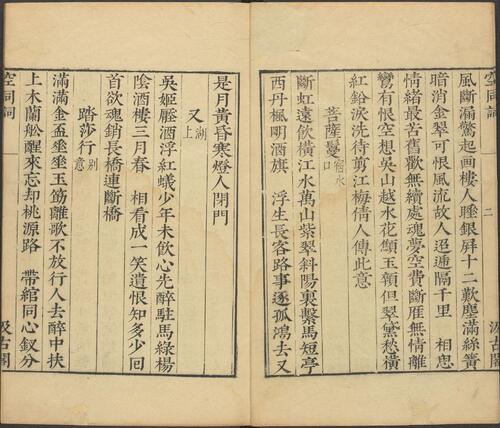 空同詞
二
汲古閣
風斷漏驚起画樓人睡銀屏十二歎塵滿絲簧
暗消金翠可恨風流故人迢逓隔千里 相思
情緒最苦舊歡無續處魂夢空費斷雁無情離
鸞有恨空想吳山越水花顦玉顇但翠黛愁橫
紅鉛淚洗待剪江梅倩人傳此意
菩薩鬘宿水口
斷虹遠飲橫江水萬山紫翠斜陽裏繫馬短亭
西丹楓明酒旗 浮生長客路事逐孤鴻去又
是月黃昏寒燈人閉門
又湖上
吳姬壓酒浮紅蟻少年未飲心先醉駐馬綠楊
陰酒樓三月春 相看成一笑遺恨知多少回
首欲魂銷長橋連斷橋
踏莎行別意
滿滿金盃垂垂玉筯離歌不放行人去醉中扶
上木蘭舩醒來忘却桃源路 帶綰同心釵分
空同詞
汲古閣